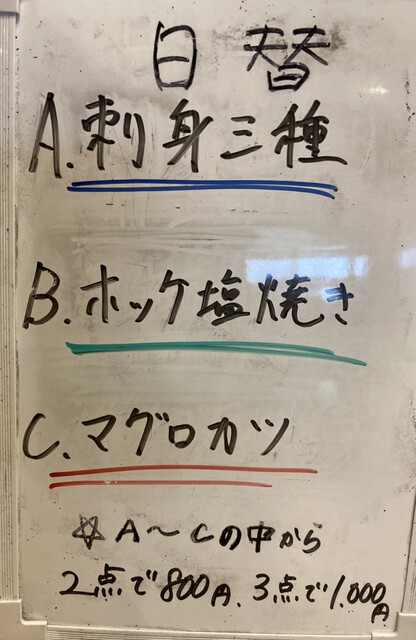 日替
A.刺身三種
B.ホッケ塩焼き
C.マグロカツ
☆A〜Cの中から
2点で800円、3点で1,000円